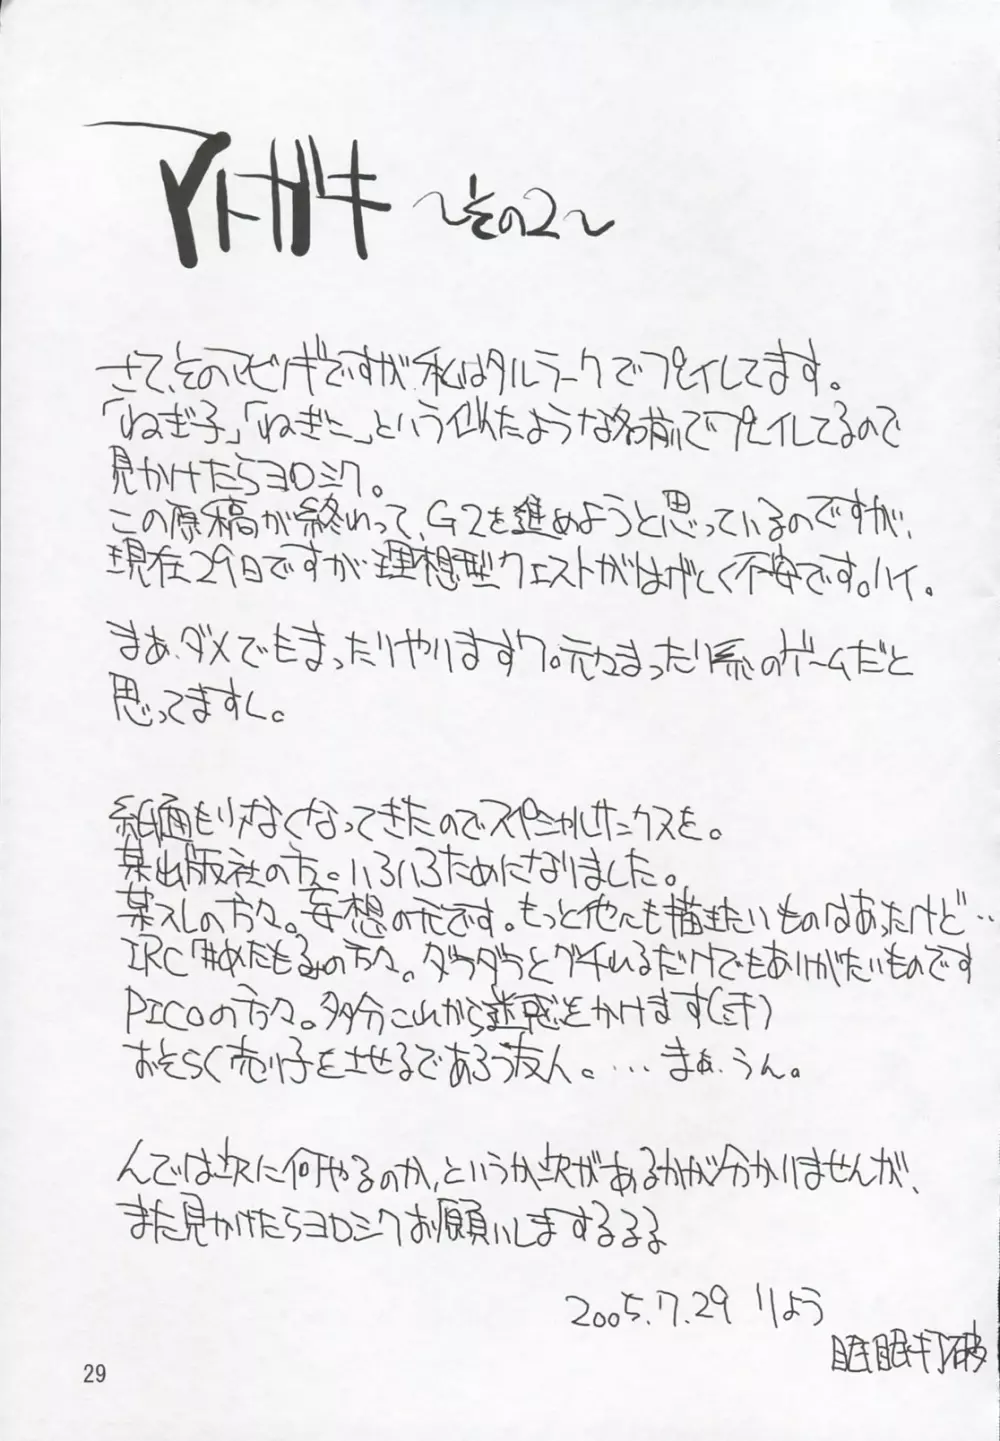 アトガキ ～その2～
さて、そのマビノギですが、私はタルラークでプレイしてます。
「ねぎ子」「ねぎこ」という似たような名前でプレイしてるので
見かけたらヨロシク。
この原稿が終わって、G2を進めようと思っているのですが、
現在29日ですが理想型クエストがはげしく不安です。ハイ。
まぁ、ダメでもまったりやりますワ。元々まったり系のゲームだと
思ってますし。
紙面もリメなくなってきたのでスペシャルサンクスを。
某出版社の方。いろいろためになりました。
某スレの方々。妄想の元です。もっと他にも描きたいものはあったけど…
IRC「#めだもる」の方々。ダラダラとグチれるだけでもありがたいものです
PICOの方々。多分これから迷惑をかけます(まて)
おそらく売り子をさせるであろう友人。…まぁ、うん。
んでは次に何やるのか、というか次があるかが分かりませんが、
また見かけたらヨロシクお願いしまするるる
2005.7.29 りよう
眠眠打破
29